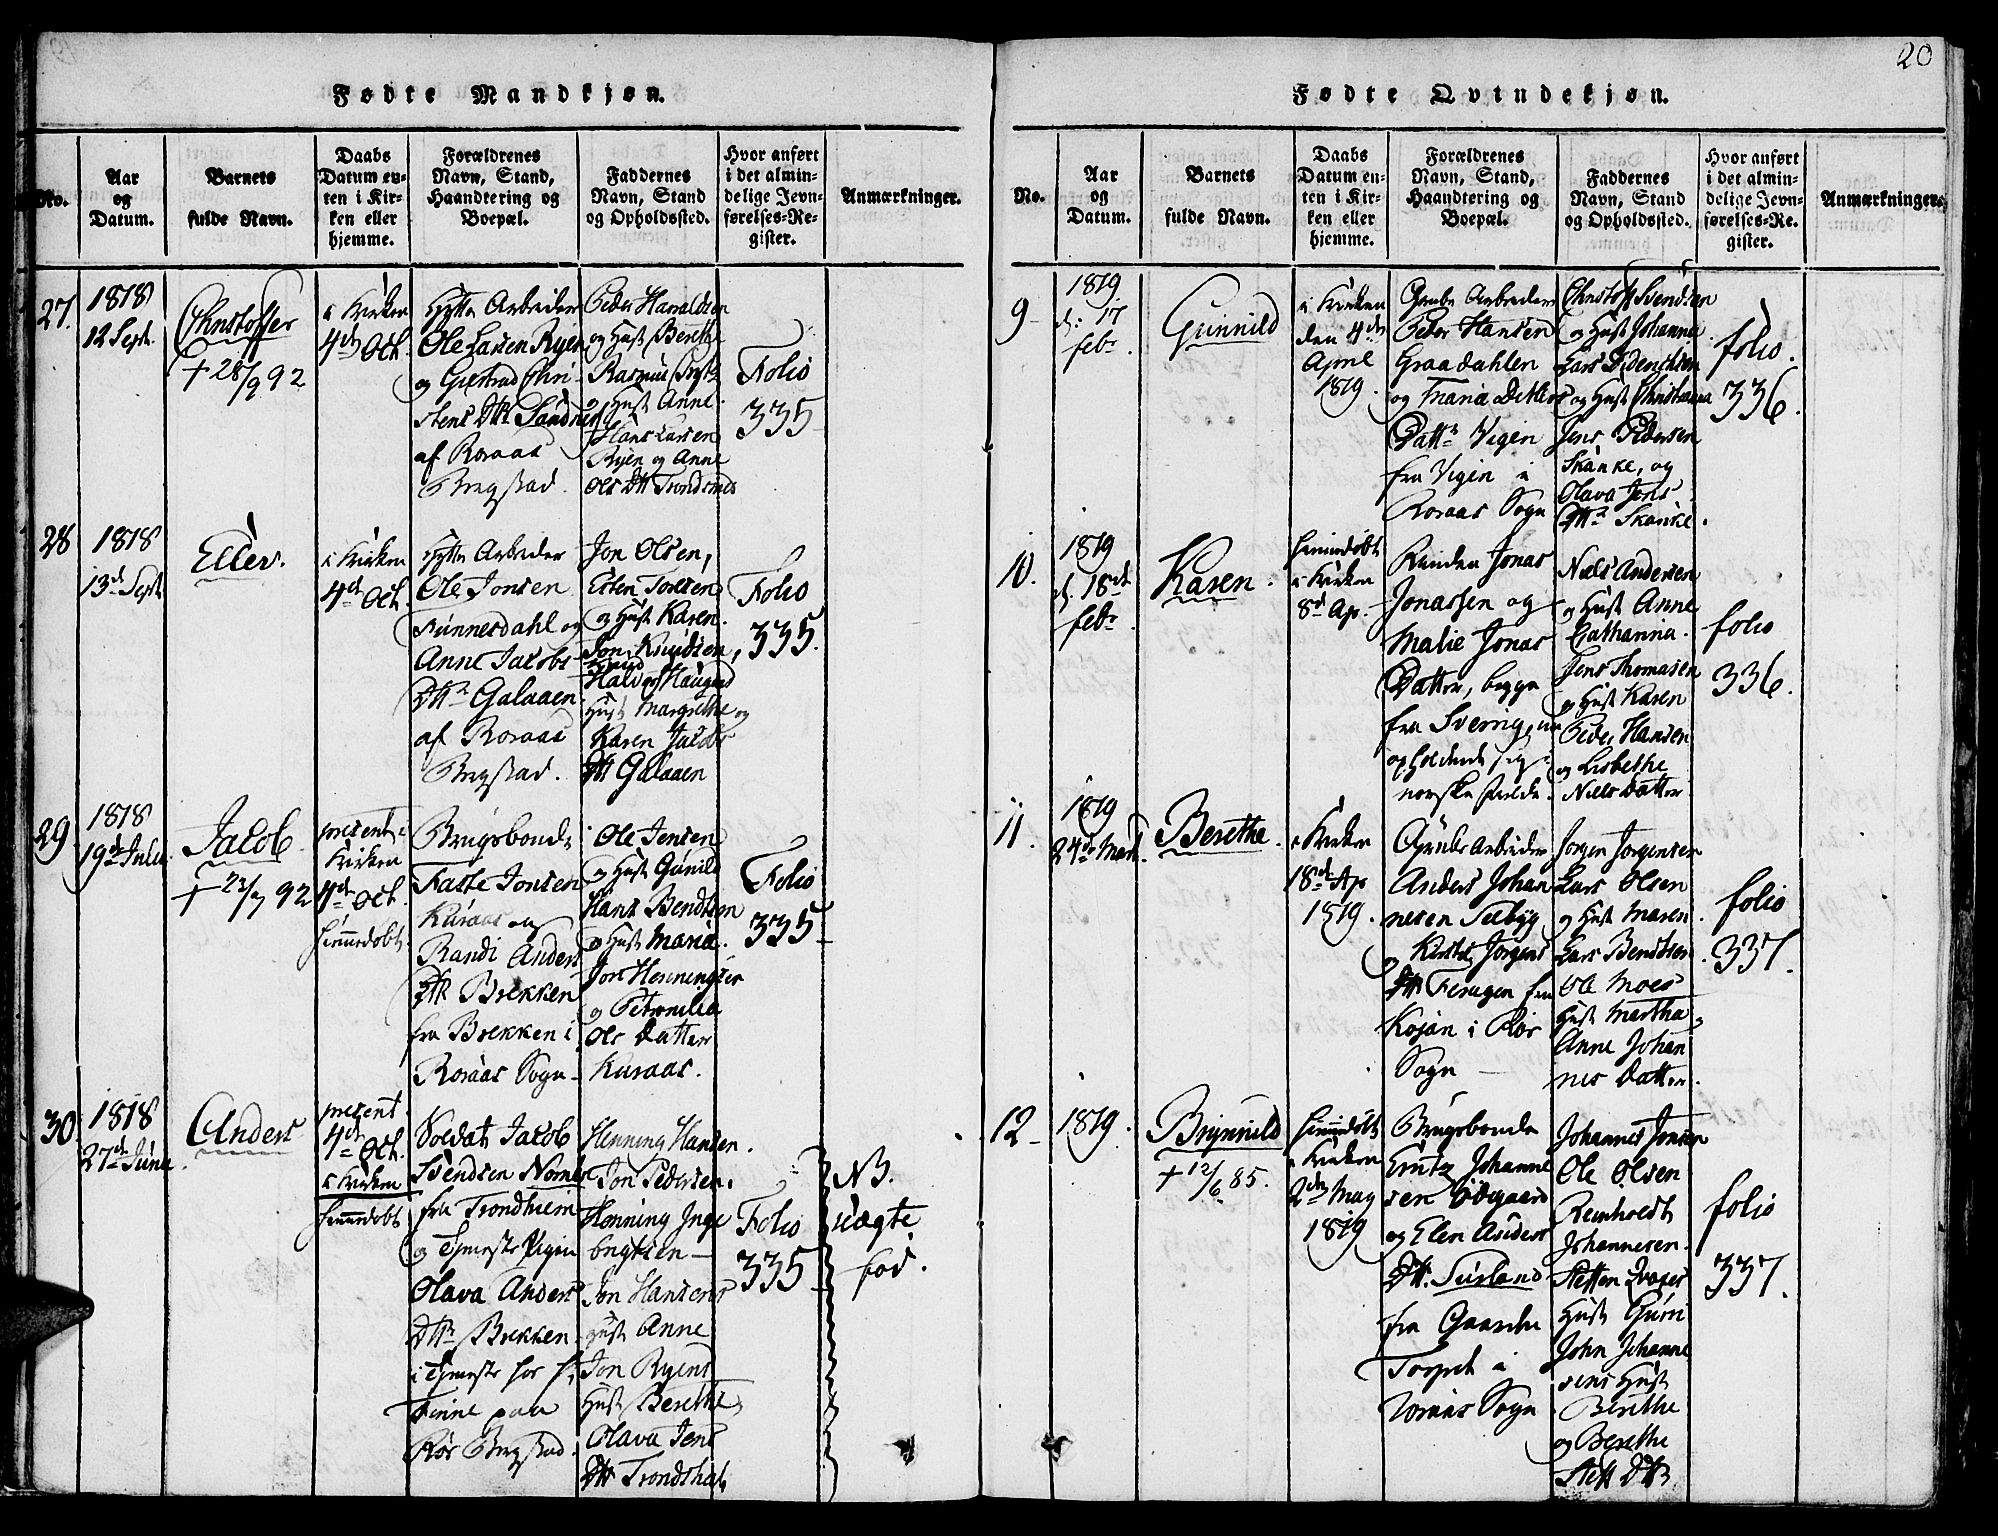 20
Fødte Mandkjøn.
No.
Aar
og
Datum.
Barnets
fulde Navn.
Daabs
Datum en-
ten i Kir-
ken eller
hjemme.
Forældrenes
Navn, Stand,
Haandtering og
Boepæl.
Faddernes
Navn, Stand
og Opholdssted.
Hvor anført
i det almin-
delige Jevn-
førelses-Re-
gister.
Anmærkninger.
27.
1818
12 Sept.
Christoffer
+ 28/9 92
i Kirken
4de Oct.
Hytte Arbeider
Ole Larsen Ryen
og Giertrud Chri-
stens Dtr Sandnes
af Roraas
Bergstad.
Peder Haraldsen
og Hust Berethe
Rasmus
og Hust Anne
Hans Larsen
Ryen og Anne
Ols Dtr Trondsmes
Folio
335
28
1818
13de Sept
Ellev.
i Kirken
4de Oct.
Hytte Arbeider
Ole Jonsen
Funnesdahl og
Anne Jacobs
Dtr Galaaen
af Roraas
Bergstad.
Jon Olsen,
Esten
og Hust Karen.
Jon Knudsen,
Knud
Haldors Haugens
Hust Margrethe og
Karen Jacobs
Dtr Galaaen
Folio
335.
29
1818
19de Julii
Jacob
+ 23/7 92
present i
Kirken
4de Oct.
hiemedøbt
Brugsbonde
Faste Jonsen
Kuraas og
Randi Anders
Dtr Brekken
fra Brekken i
Roraas Sogn
Ole Jensen
og Hust Gunild
Hans Bendtsen
og Hust Maria.
Jon Henningsen
og Petronilia
Ols Datter
Kuraas.
Folio
335
30
1818
27de Junii
Anders
present
4de Oct.
i Kirken
hiemedøbt
Soldat Jacob
Svendsen
fra Trondhiem
og Tieneste Pigen
Olava Anders
Dtr Brekken
i Tieneste hos H.
Finne paa
Rør Bergstad.
Henning Hansen.
Jon Pedersen.
Henning Inge
brigtsen
Jon Hansens
Hust Anne
Jon Ryens
Hust Berethe
Olava Jens
Dtr
Folio
335
NB.
uægte
fød.
Fødte Qvindekjøn.
No.
Aar
og
Datum.
Barnets
fulde Navn.
Daabs
Datum en-
ten i Kir-
ken eller
hjemme.
Forældrenes
Navn, Stand,
Haandtering og
Boepæl.
Faddernes
Navn, Stand
og Opholdssted.
Hvor anført
i det almin-
delige Jevn-
førelses-Re-
gister.
Anmærkninger.
9
1819
d: 17
febr.
Gunnild
i Kirken
den 4de
April
1819.
Grube Arbeider
Peder Hansen
Graadahlen
og Maria Detlevs
Dattr Vigen
fra Vigen i
Roraas Sogn
Christoff Svendsen
og Hust Johanna
Lars Diderichsen
og Hust Christiana
Jens Pedersen
Skanke, og
Olava Jens
Dtr Skanke.
folio.
336.
10.
1819
d. 18de
febr.
Karen.
hiemdøbt
i Kirken
8de Ap.
Jonas
Jonassen og
Malie Jonas
Datter, begge
fra Sverig,
opholdende sig
norske
Niels Andersen
og Hust Anne
Catharina.
Jens Thomasen
og Hust Karen
Peder Hansen
og Lisbethe
Niels Datter
folio
336.
11.
1819
24de Marti.
Berethe.
i Kirken
18de Ap
1819.
Grube Arbeider
Anders Johan
nesen Selbyg
og Kirsti Jorgens
Dtr Feragen fra
Kojan i Rør
Sogn
Jorgen Jorgensen
Lars Olsen
og Hust Maren.
Lars Bendtsen
Ole Moes
Hust Martha
Anne Johan
nes Datter.
folio
337.
12
1819.
Brynnild
+ 12/6 85.
hiemdøbt
i Kirken
2den May
1819
Brugsbonde
Johanne
sen Ødegaard
og Elen Anders
Dtr.
fra Gaarden
Torpet i
Roraas Sogn
Johannes Jonsen
Ole Olsen
Reinholdt
Johannesen.
Steffen Ivers
Hust Guri
John Johanne
sens Hust
Berethe
og Berethe
Steff Dtr
folio
337.